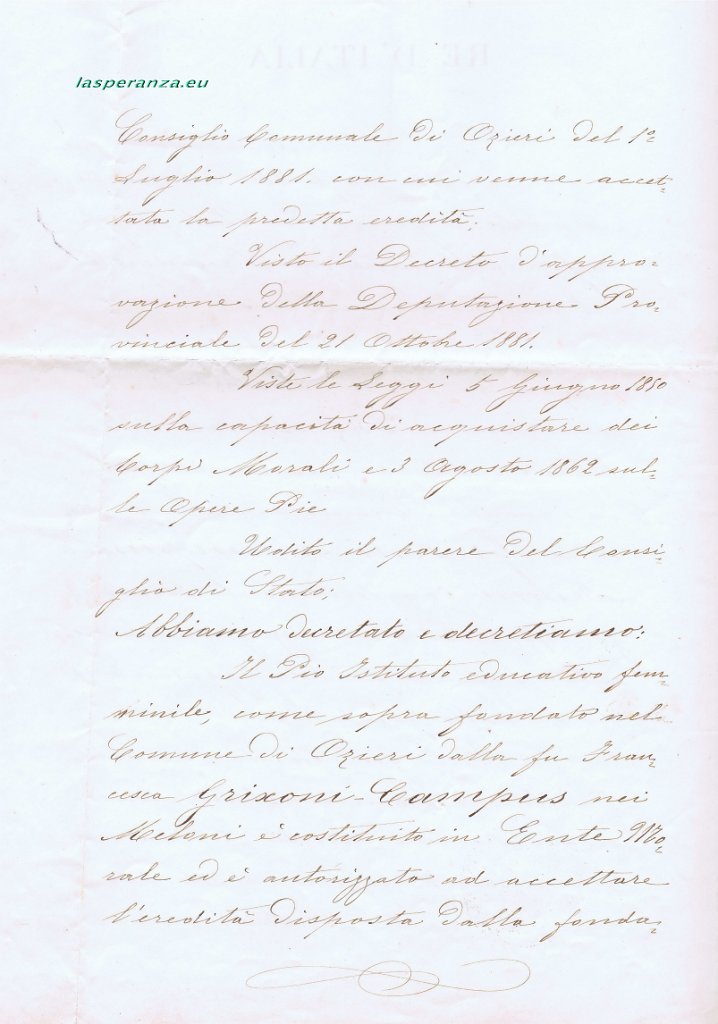 RE D'ITALIA
lasperanza.eu
Consiglio Comunale di Ozieri del 1º
Luglio 1881. con cui venne accet-
tata la predetta eredità;
Visto il Decreto d'appro-
vazione della Deputazione Pro-
vinciale del 21 Ottobre 1881.
Viste le Leggi 5 Giugno 1850
sulla capacità di acquistare dei
Corpi Morali e 3 Agosto 1862 sul-
le Opere Pie
Udito il parere del Consi-
glio di Stato;
Abbiamo decretato e decretiamo:
Il Pio Istituto educativo fem-
minile, come sopra fondato nel
Comune di Ozieri dalla fu Fran-
cesca Grixoni-Campus nei
Meloni è costituito in Ente Mo-
rale ed è autorizzato ad accettare
l'eredità disposta dalla fonda-